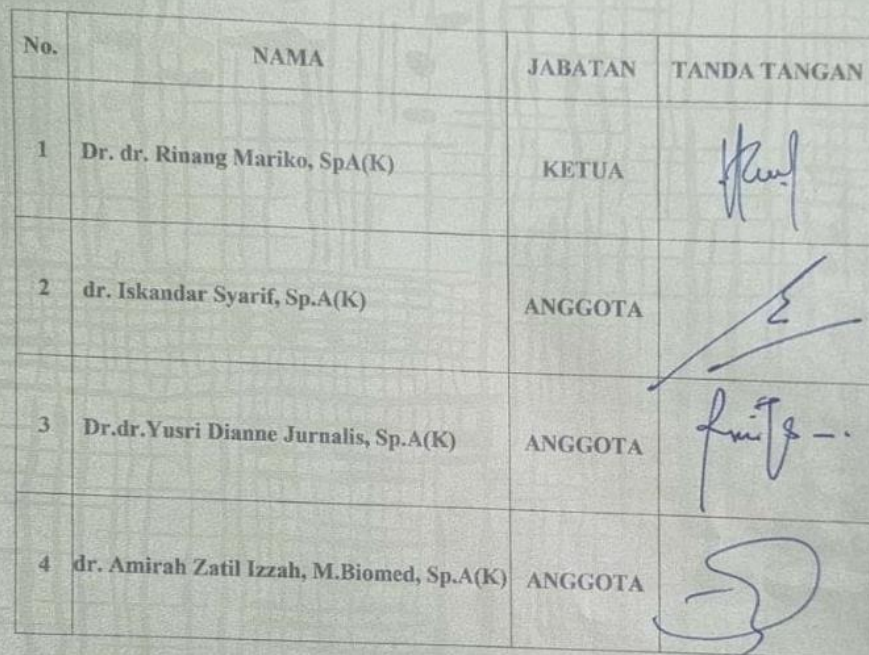 No. NAMA JABATAN TANDA TANGAN
1 Dr. dr. Rinang Mariko, SpA(K) KETUA
2 dr. Iskandar Syarif, Sp.A(K) ANGGOTA
3 Dr.dr.Yusri Dianne Jurnalis, Sp.A(K) ANGGOTA
4 dr. Amirah Zatil Izzah, M.Biomed, Sp.A(K) ANGGOTA